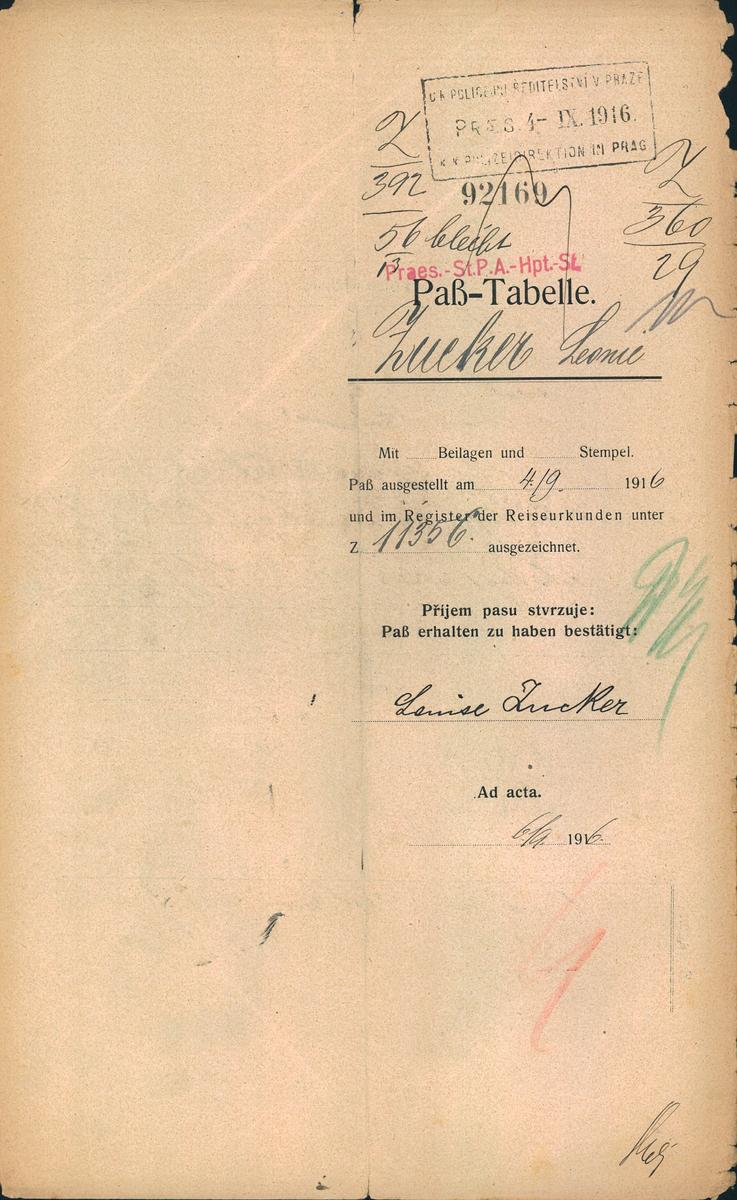 C. K. POLICEJNÍ ŘEDITELSTVÍ V PRAZE
PRAES. 4- IX. 1916.
K. K. POLIZEIDIREKTION IN PRAG
Z
392
56 bleibt
13
92169
Z
360
29
Praes.-St.P.A.-Hpt.-St.
Paß-Tabelle.
Zucker Leonie
Mit Beilagen und Stempel.
Paß ausgestellt am 4./9. 1916
und im Register der Reiseurkunden unter
Z 11356. ausgezeichnet.
Příjem pasu stvrzuje:
Paß erhalten zu haben bestätigt:
Louise Zucker
Ad acta.
6/9 1916.